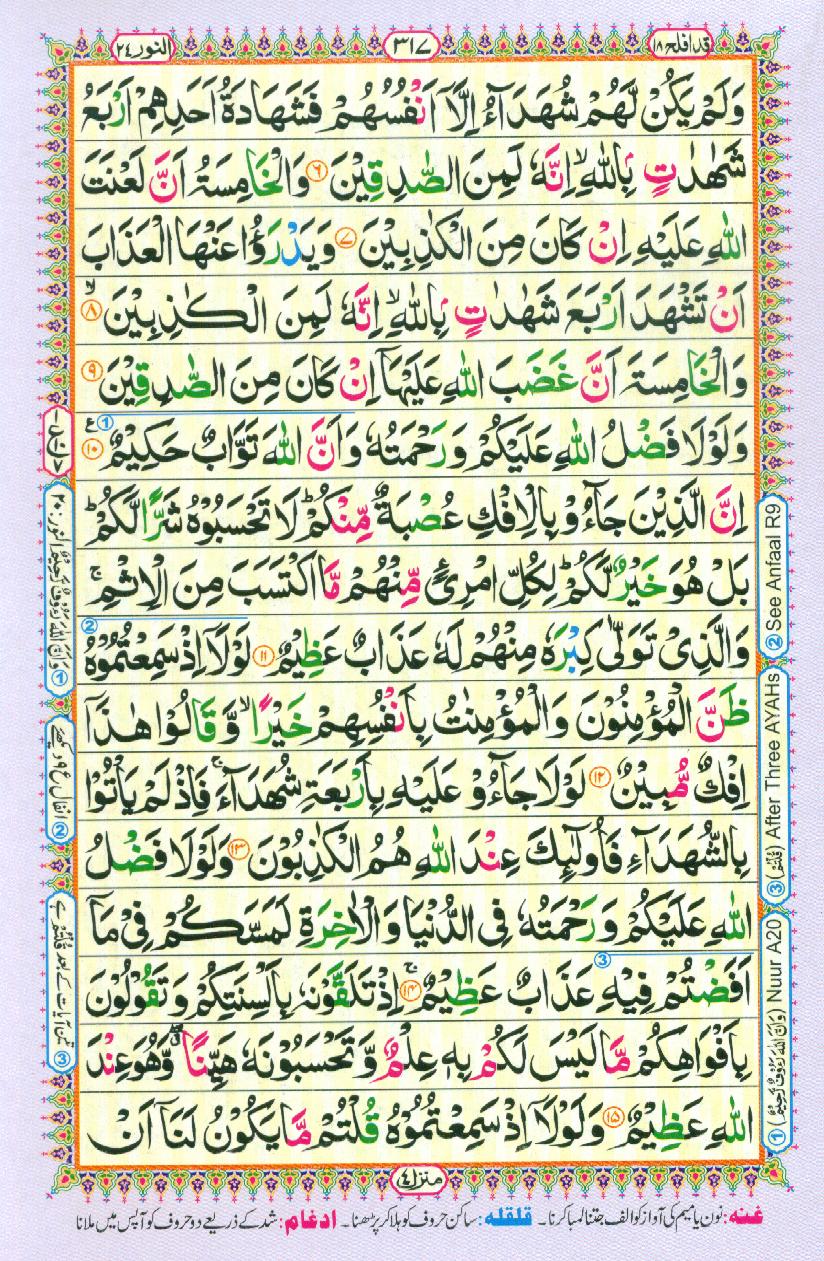 قد افلح ۱۸
۳۱۷
النور ۲۴
وَلَمْ يَكُنْ لَّهُمْ شُهَدَآءُ اِلَّآ اَنْفُسُهُمْ فَشَهَادَةُ اَحَدِهِمْ اَرْبَعُ
شَهٰدٰتٍۭ بِاللّٰهِ ۙ اِنَّهٗ لَمِنَ الصّٰدِقِيْنَ ۶ وَالْخَامِسَةُ اَنَّ لَعْنَتَ
اللّٰهِ عَلَيْهِ اِنْ كَانَ مِنَ الْكٰذِبِيْنَ ۷ وَيَدْرَؤُا عَنْهَا الْعَذَابَ
اَنْ تَشْهَدَ اَرْبَعَ شَهٰدٰتٍۭ بِاللّٰهِ ۙ اِنَّهٗ لَمِنَ الْكٰذِبِيْنَ ۸ ۙ
وَالْخَامِسَةَ اَنَّ غَضَبَ اللّٰهِ عَلَيْهَآ اِنْ كَانَ مِنَ الصّٰدِقِيْنَ ۹
وَلَوْلَا فَضْلُ اللّٰهِ عَلَيْكُمْ وَرَحْمَتُهٗ وَاَنَّ اللّٰهَ تَوَّابٌ حَكِيْمٌ ۱۰ ع ①
اِنَّ الَّذِيْنَ جَآءُوْ بِالْاِفْكِ عُصْبَةٌ مِّنْكُمْ ؕ لَا تَحْسَبُوْهُ شَرًّا لَّكُمْ ؕ
بَلْ هُوَ خَيْرٌ لَّكُمْ ؕ لِكُلِّ امْرِئٍ مِّنْهُمْ مَّا اكْتَسَبَ مِنَ الْاِثْمِ ۚ
وَالَّذِيْ تَوَلّٰى كِبْرَهٗ مِنْهُمْ لَهٗ عَذَابٌ عَظِيْمٌ ۱۱ لَوْلَآ اِذْ سَمِعْتُمُوْهُ ②
ظَنَّ الْمُؤْمِنُوْنَ وَالْمُؤْمِنٰتُ بِاَنْفُسِهِمْ خَيْرًا ۙ وَّقَالُوْا هٰذَآ
اِفْكٌ مُّبِيْنٌ ۱۲ لَوْلَا جَآءُوْ عَلَيْهِ بِاَرْبَعَةِ شُهَدَآءَ ۚ فَاِذْ لَمْ يَاْتُوْا
بِالشُّهَدَآءِ فَاُولٰٓئِكَ عِنْدَ اللّٰهِ هُمُ الْكٰذِبُوْنَ ۱۳ وَلَوْلَا فَضْلُ
اللّٰهِ عَلَيْكُمْ وَرَحْمَتُهٗ فِي الدُّنْيَا وَالْاٰخِرَةِ لَمَسَّكُمْ فِيْ مَآ
اَفَضْتُمْ فِيْهِ عَذَابٌ عَظِيْمٌ ۱۴ ۚۖ اِذْ تَلَقَّوْنَهٗ بِاَلْسِنَتِكُمْ وَتَقُوْلُوْنَ ③
بِاَفْوَاهِكُمْ مَّا لَيْسَ لَكُمْ بِهٖ عِلْمٌ وَّتَحْسَبُوْنَهٗ هَيِّنًا ۖ وَّهُوَ عِنْدَ
اللّٰهِ عَظِيْمٌ ۱۵ وَلَوْلَآ اِذْ سَمِعْتُمُوْهُ قُلْتُمْ مَّا يَكُوْنُ لَنَآ اَنْ
② See Anfaal R9
③ (قُلْتُمْ) After Three AYAHs
① (وَاَنَّ اللّٰهَ رَءُوْفٌ رَّحِيْمٌ) Nuur A20
① وَاَنَّ اللّٰهَ رَءُوْفٌ رَّحِيْمٌ النور: ۲۰
② انفال ع ۹ دیکھئے
③ تین آیات کے بعد قُلْتُمْ ہے
منزل ۴
غنه: نون یا میم کی آواز کو الف جتنا لمبا کرنا۔ قلقله: ساکن حروف کو ہلا کر پڑھنا۔ ادغام: شد کے ذریعے دو حروف کو آپس میں ملانا